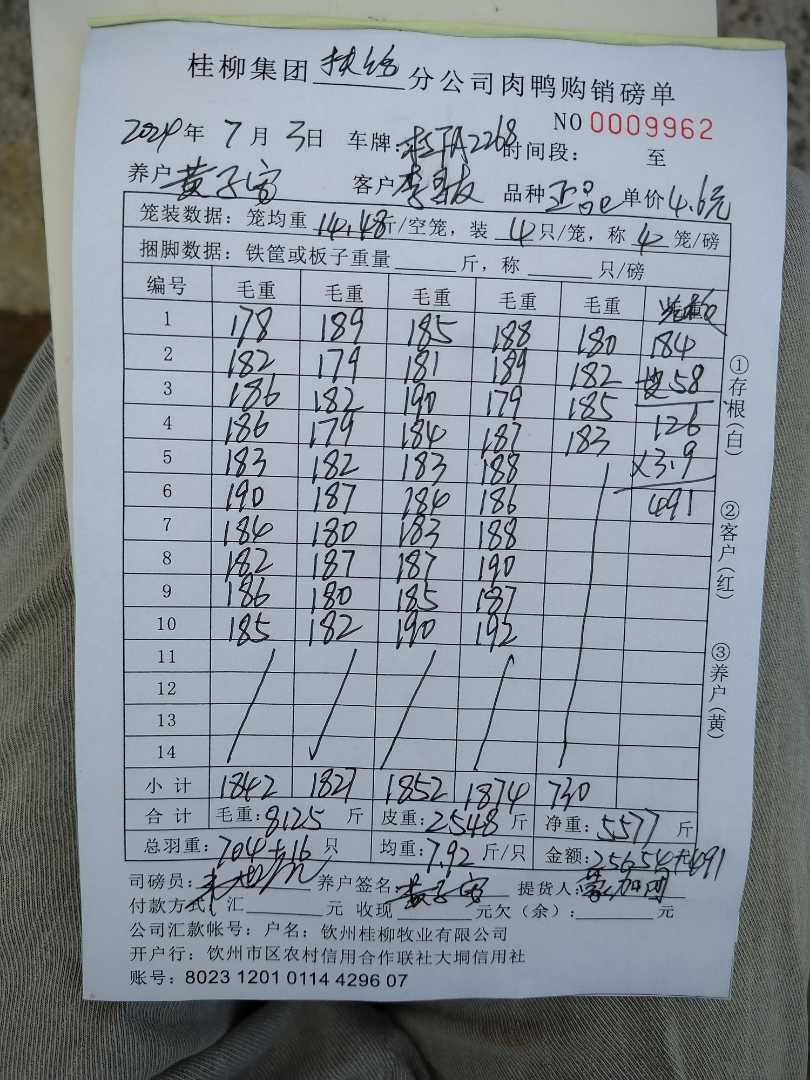 桂柳集团 分公司肉鸭购销磅单
NO 0009962
2024年 7月 3日 车牌: A2268 时间段: 至
养户 黄子富 客户 李 品种 单价 4.6元
笼装数据: 笼均重 14.48 斤/空笼, 装 4 只/笼, 称 4 笼/磅
捆脚数据: 铁筐或板子重量 斤, 称 只/磅
编号 毛重 毛重 毛重 毛重 毛重
1 178 189 185 188 180 184
2 182 179 181 189 182 58
3 186 182 190 179 185 126
4 186 179 184 187 183 ×3.9
5 183 182 183 188 491
6 190 187 184 186
7 184 180 183 188
8 182 187 187 190
9 186 180 185 187
10 185 182 190 192
11
12
13
14
小计 1842 1827 1852 1874 730
合计 毛重: 8125 斤 皮重: 2548 斤 净重: 5577 斤
总羽重: 704+16 只 均重: 7.92 斤/只 金额: 25654+491
司磅员: 养户签名: 黄子富 提货人:
付款方式: 汇 元 收现 元欠(余): 元
公司汇款帐号: 户名: 钦州桂柳牧业有限公司
开户行: 钦州市区农村信用合作联社大垌信用社
账号: 8023 1201 0114 4296 07
①存根(白)
②客户(红)
③养户(黄)